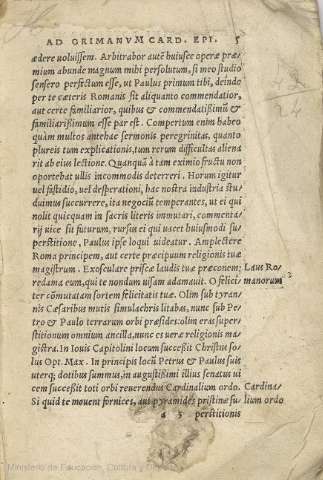 AD GRIMANVM CARD. EPI. 5
ædere voluissem. Arbitrabor autē huiusce operæ præ-
mium abunde magnum mihi persolutum, si meo studio
sensero perfectum esse, ut Paulus primum tibi, deinde
per te cæteris Romanis sit aliquanto commendatior,
aut certe familiarior, quibus & commendatissimū &
familiarissimum esse par est. Compertum enim habeo
quàm multos antehac sermonis peregrinitas, quanto
plureis tum explicationis, tum rerum difficultas aliena
rit ab eius lectione. Quanquā à tam eximio fructu non
oportebat ullis incommodis deterreri. Horum igitur
uel fastidio, uel desperationi, hac nostra industria stu-
duimus succurrere, ita negociū temperantes, ut ei qui
nolit quicquam in sacris literis immutari, commenta-
rij uice sit futurum, rursus ei qui uacet huiusmodi su-
perstitione, Paulus ipse loqui uideatur. Amplectere
Roma principem, aut certe præcipuum religionis tuæ
magistrum. Exosculare priscæ laudis tuæ præconem; Laus Ro-
redama eum, qui te nondum uisam adamauit. O felici manorum
ter cōmutatam sortem felicitatis tuæ. Olim sub tyran-
nis Cæsaribus mutis simulachris litabas, nunc sub Pe-
tro & Paulo terrarum orbi præsides: olim eras super-
stitionum omnium ancilla, nunc es uera religionis ma-
gistra. In Iouis Capitolini locum successit Christus so-
lus Opt. Max. In principis locū Petrus & Paulus suis
uterq; dotibus summus, in augustissimi illius senatus ui
cem successit toti orbi reuerendus Cardinalium ordo. Cardina-
Si quid te mouent fornices, aut pyramides pristinæ su lium ordo
a 5 perstitionis
Ministerio de Educación, Cultura y Deporte